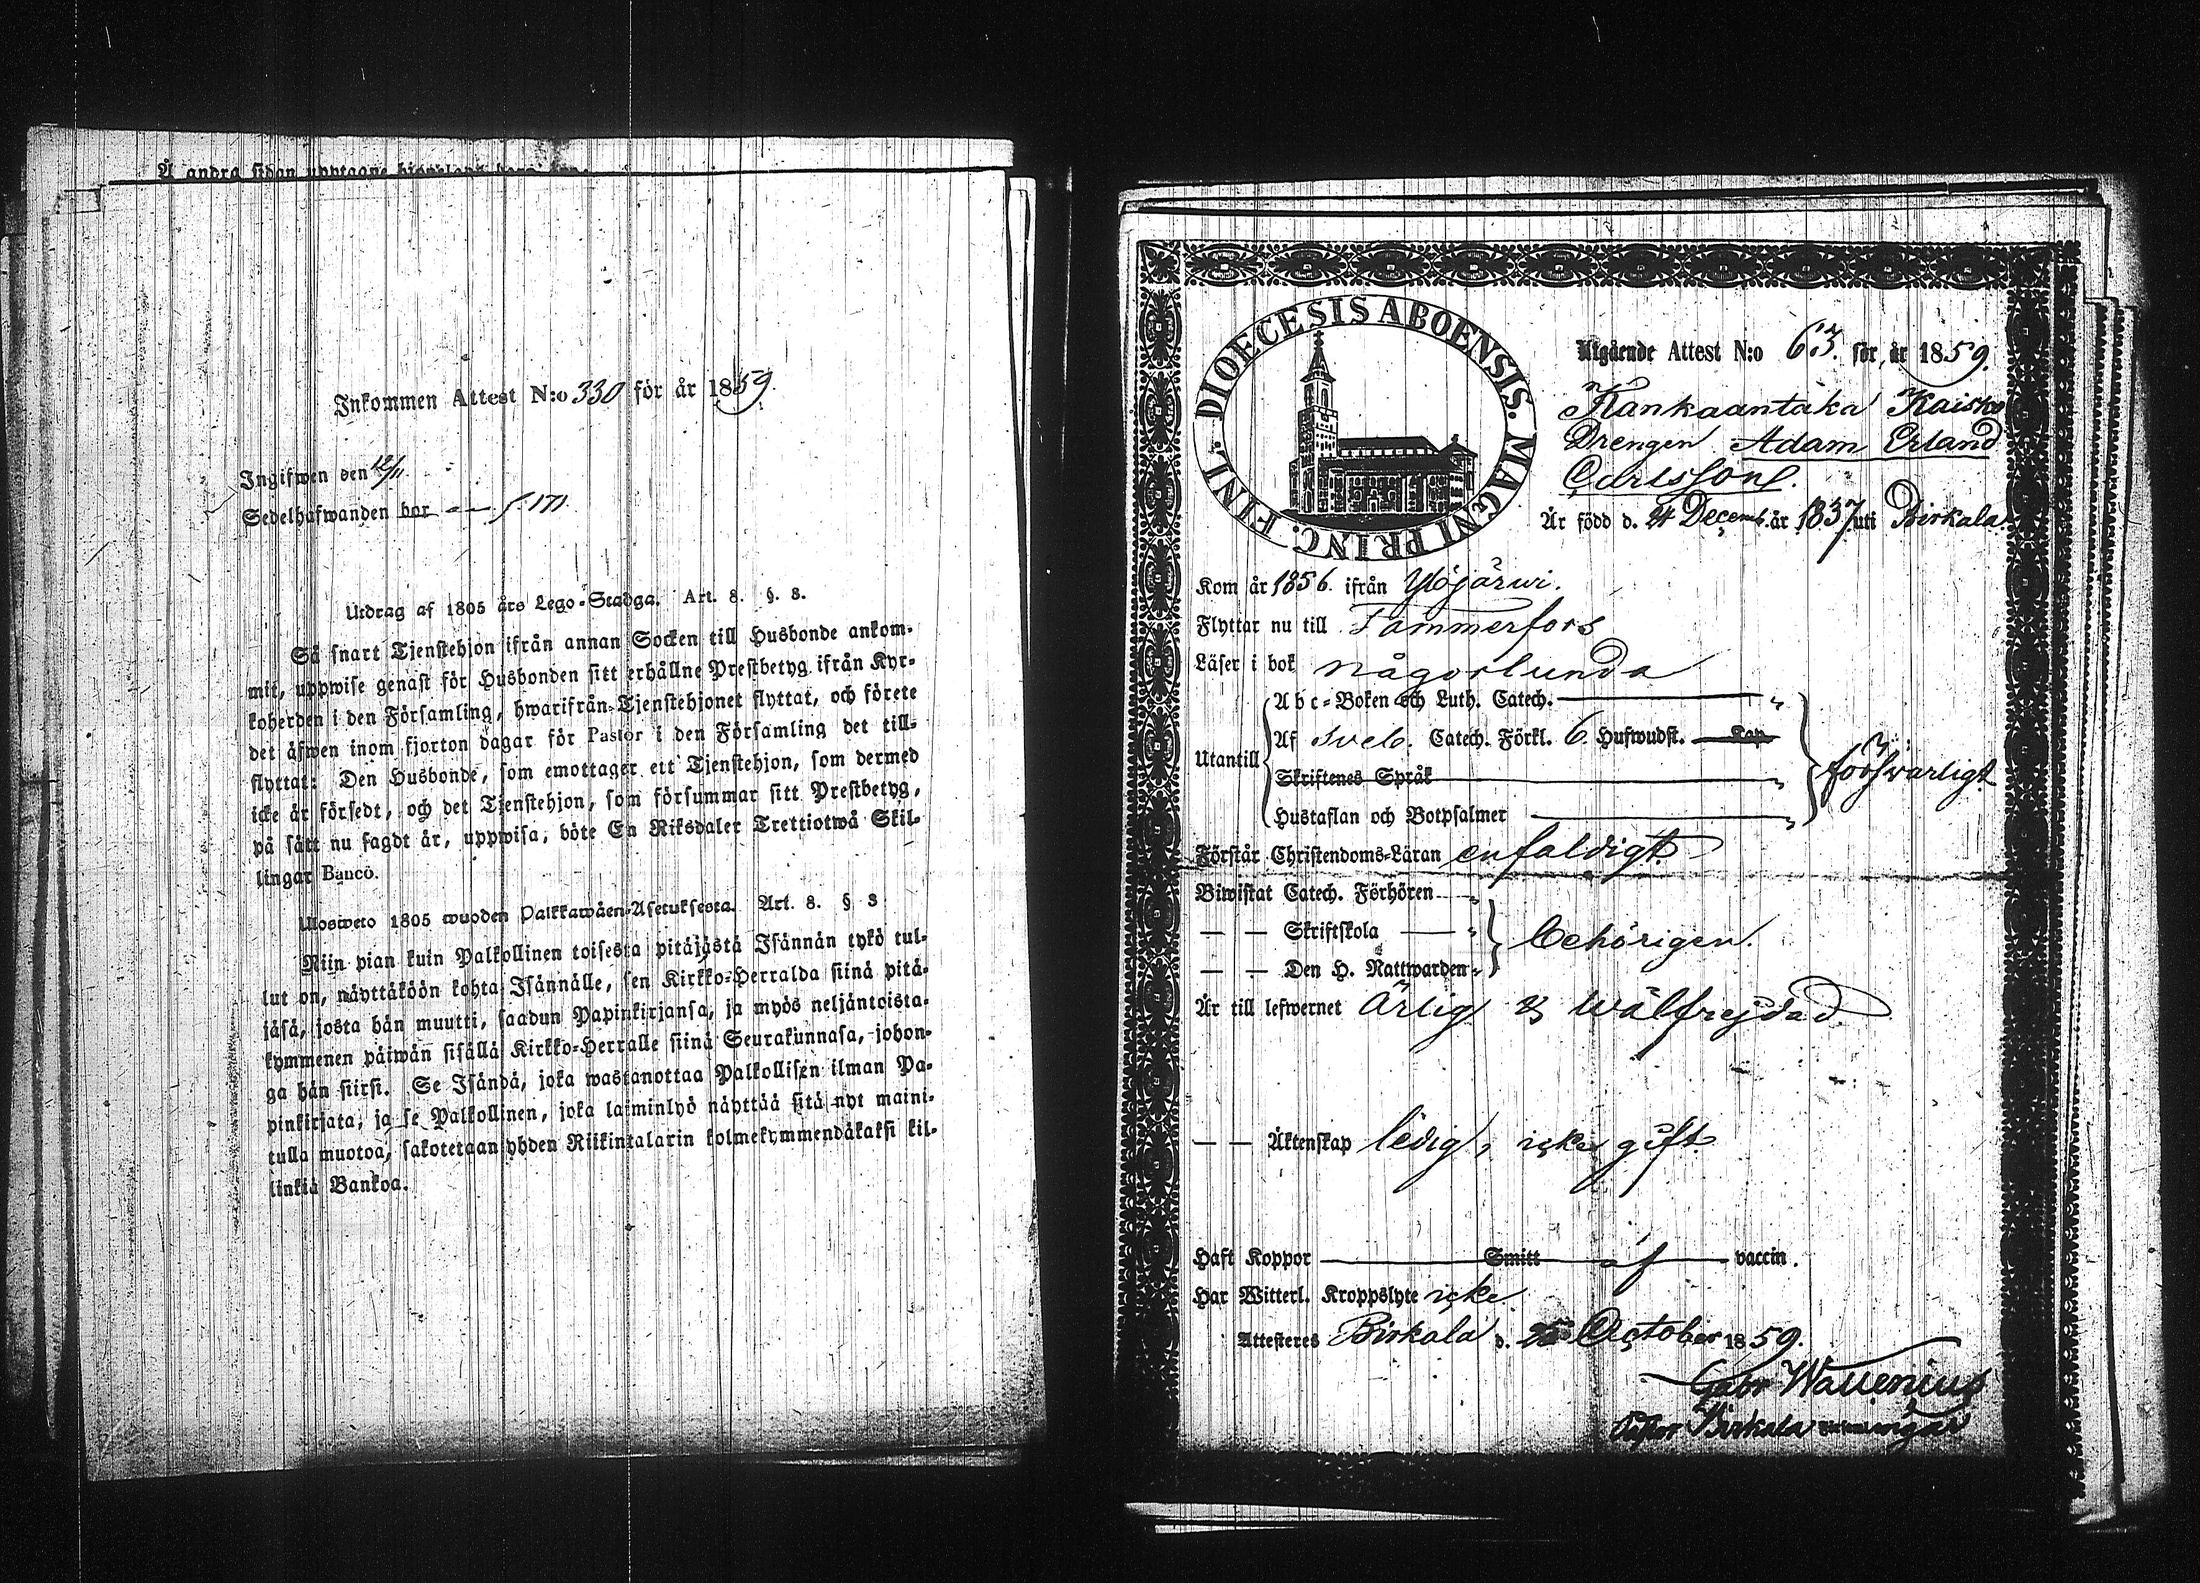 Å andra sidan upptagne
Inkommen Attest N:o 330 för år 1859.
Ingifwen den 12/11.
Sedelhafwanden bor
Utdrag af 1805 års Lego-Stadga. Art. 8. §. 8.
Så snart Tjenstehjon ifrån annan Socken till Husbonde ankom-
mit, uppwise genast för Husbonden sitt erhållne Prestbetyg ifrån Kyr-
koherden i den Församling, hwarifrån Tjenstehjonet flyttat, och förete
det äfwen inom fjorton dagar för Pastor i den Församling det till-
flyttat: Den Husbonde, som emottager ett Tjenstehjon, som dermed
icke är försedt, och det Tjenstehjon, som försummar sitt Prestbetyg,
på sätt nu sagdt är, uppwisa, böte En Riksdaler Trettiotwå Skil-
lingar Banco.
Ulosweto 1805 wuoden Palkkawäen-Asetuksesta. Art. 8. § 8
Niin pian kuin Palkollinen toisesta pitäjästä Isännän tykö tul-
lut on, näyttäköön kohta Isännälle, sen Kirkko-Herralda siinä pitä-
jäsä, josta hän muutti, saadun Papinkirjansa, ja myös neljäntoista-
kymmenen päiwän sisällä Kirkko-Herralle siinä Seurakunnasa, johon-
ga hän siirsi. Se Isändä, joka wastanottaa Palkollisen ilman Pa-
pinkirjata, ja se Palkollinen, joka laiminlyö näyttää sitä nyt maini-
tulla muotoa, sakotetaan yhden Riikintalarin kolmekymmendäkaksi kil-
linkiä Bankoa.
DIOECESIS ABOENSIS. MAGNI PRINC. FINL.
Utgående Attest N:o 63. för år 1859.
Kankaantaka Kaisko
Drengen Adam Erland
Carlsson.
Är född d. 24 Decemb. år 1837 uti Birkala.
Kom år 1856. ifrån Ylöjärwi.
Flyttar nu till Tammerfors
Läser i bok någorlunda
Utantill
Abc-Boken och Luth. Catech.
Af sveb. Catech. Förkl. 6. Hufwudst. Kap
Skriftenes Språk
Hustaflan och Botpsalmer
försvarligt
Förstår Christendoms-Läran enfaldigt
Biwistat Catech. Förhören
— — Skriftskola
— — Den H. Nattwarden
behörigen.
Är till lefwernet ärlig & wälfrejdad
— — Äktenskap ledig, icke gift
Haft Koppor Smitt af vaccin.
Har Witterl. Kroppslyte icke
Attesteres Birkala d. October 1859.
Gabr Wallenius
Pastor Birkala